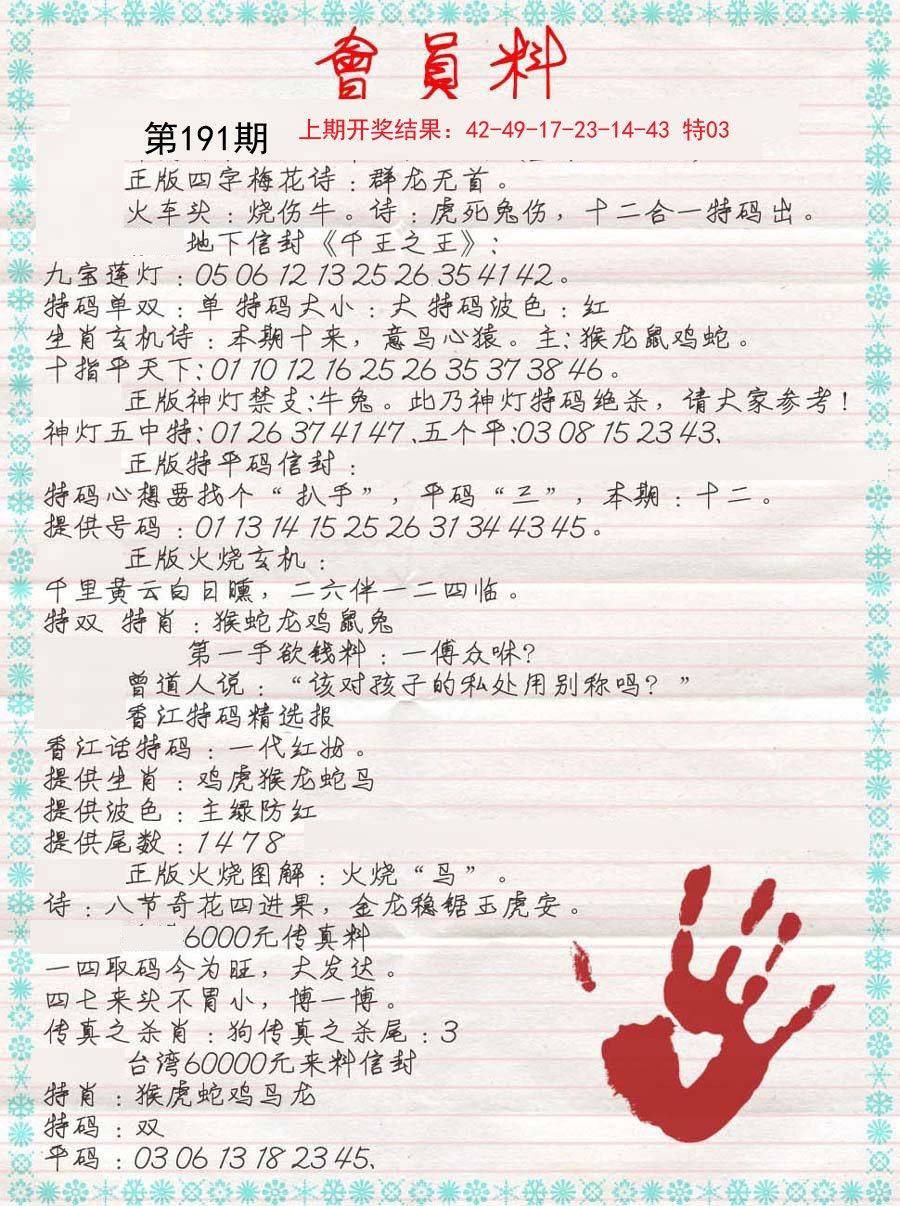 會員料
第191期 上期开奖结果：42-49-17-23-14-43 特03
正版四字梅花诗：群龙无首。
火车头：烧伤牛。诗：虎死兔伤，十二合一特码出。
地下信封《千王之王》：
九宝莲灯：05 06 12 13 25 26 35 41 42。
特码单双：单 特码大小：大 特码波色：红
生肖玄机诗：本期十来，意马心猿。主：猴龙鼠鸡蛇。
十指平天下：01 10 12 16 25 26 35 37 38 46。
正版神灯禁支：牛兔。此乃神灯特码绝杀，请大家参考！
神灯五中特：01 26 37 41 47、五个平：03 08 15 23 43、
正版特平码信封：
特码心想要找个“扒手”，平码“三”，本期：十二。
提供号码：01 13 14 15 25 26 31 34 43 45。
正版火烧玄机：
千里黄云白日曛，二六伴一二四临。
特双 特肖：猴蛇龙鸡鼠兔
第一手欲钱料：一傅众咻？
曾道人说：“该对孩子的私处用别称吗？”
香江特码精选报
香江话特码：一代红妆。
提供生肖：鸡虎猴龙蛇马
提供波色：主绿防红
提供尾数：1 4 7 8
正版火烧图解：火烧“鸟”。
诗：八节奇花四进果，金龙稳锯玉虎安。
6000元传真料
一四取码今为旺，大发达。
四七来头不胃小，博一博。
传真之杀肖：狗传真之杀尾：3
台湾60000元来料信封
特肖：猴虎蛇鸡马龙
特码：双
平码：03 06 13 18 23 45、